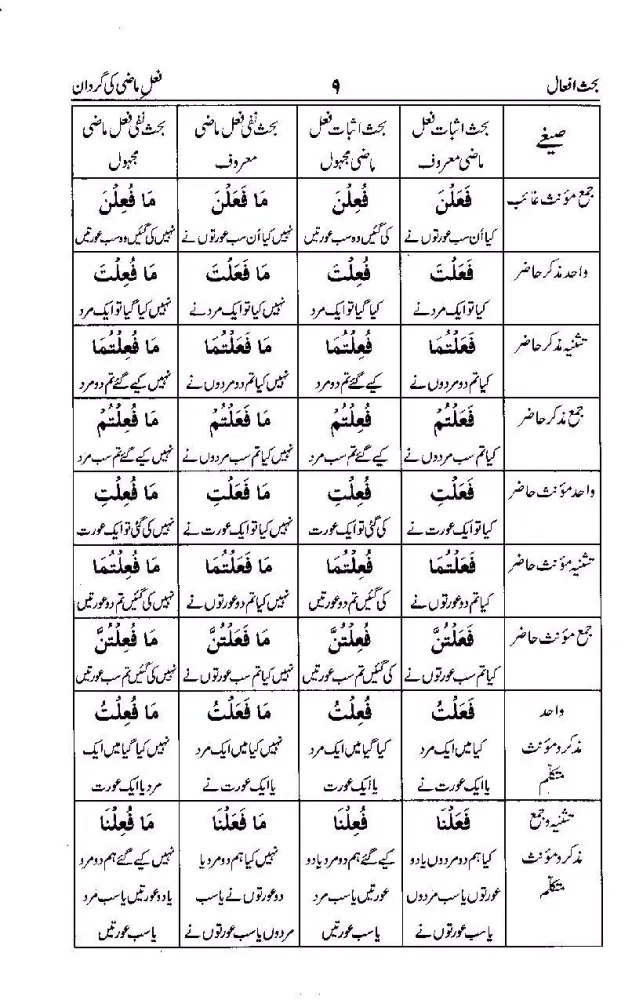 بحث افعال ۹ فعل ماضی کی گردان
صیغے بحث اثبات فعل بحث اثبات فعل بحث نفی فعل ماضی بحث نفی فعل ماضی
ماضی معروف ماضی مجہول معروف مجہول
جمع مؤنث غائب فَعَلْنَ فُعِلْنَ مَا فَعَلْنَ مَا فُعِلْنَ
کیا اُن سب عورتوں نے کی گئیں وہ سب عورتیں نہیں کیا اُن سب عورتوں نے نہیں کی گئیں وہ سب عورتیں
واحد مذکر حاضر فَعَلْتَ فُعِلْتَ مَا فَعَلْتَ مَا فُعِلْتَ
کیا تو ایک مرد نے کیا گیا تو ایک مرد نہیں کیا تو ایک مرد نے نہیں کیا گیا تو ایک مرد
تثنیہ مذکر حاضر فَعَلْتُمَا فُعِلْتُمَا مَا فَعَلْتُمَا مَا فُعِلْتُمَا
کیا تم دو مردوں نے کیے گئے تم دو مرد نہیں کیا تم دو مردوں نے نہیں کیے گئے تم دو مرد
جمع مذکر حاضر فَعَلْتُمْ فُعِلْتُمْ مَا فَعَلْتُمْ مَا فُعِلْتُمْ
کیا تم سب مردوں نے کیے گئے تم سب مرد نہیں کیا تم سب مردوں نے نہیں کیے گئے تم سب مرد
واحد مؤنث حاضر فَعَلْتِ فُعِلْتِ مَا فَعَلْتِ مَا فُعِلْتِ
کیا تو ایک عورت نے کی گئی تو ایک عورت نہیں کیا تو ایک عورت نے نہیں کی گئی تو ایک عورت
تثنیہ مؤنث حاضر فَعَلْتُمَا فُعِلْتُمَا مَا فَعَلْتُمَا مَا فُعِلْتُمَا
کیا تم دو عورتوں نے کی گئیں تم دو عورتیں نہیں کیا تم دو عورتوں نے نہیں کی گئیں تم دو عورتیں
جمع مؤنث حاضر فَعَلْتُنَّ فُعِلْتُنَّ مَا فَعَلْتُنَّ مَا فُعِلْتُنَّ
کیا تم سب عورتوں نے کی گئیں تم سب عورتیں نہیں کیا تم سب عورتوں نے نہیں کی گئیں تم سب عورتیں
واحد فَعَلْتُ فُعِلْتُ مَا فَعَلْتُ مَا فُعِلْتُ
مذکر و مؤنث کیا میں ایک مرد کیا گیا میں ایک مرد نہیں کیا میں ایک مرد نہیں کیا گیا میں ایک
متکلم یا ایک عورت نے یا ایک عورت یا ایک عورت نے مرد یا ایک عورت
تثنیہ و جمع فَعَلْنَا فُعِلْنَا مَا فَعَلْنَا مَا فُعِلْنَا
مذکر و مؤنث کیا ہم دو مردوں یا دو کیے گئے ہم دو مرد یا دو نہیں کیا ہم دو مرد یا نہیں کیے گئے ہم دو مرد
متکلم عورتوں یا سب مردوں عورتیں یا سب مرد دو عورتوں نے یا سب یا دو عورتیں یا سب مرد
یا سب عورتوں نے یا سب عورتیں مردوں یا سب عورتوں نے یا سب عورتیں